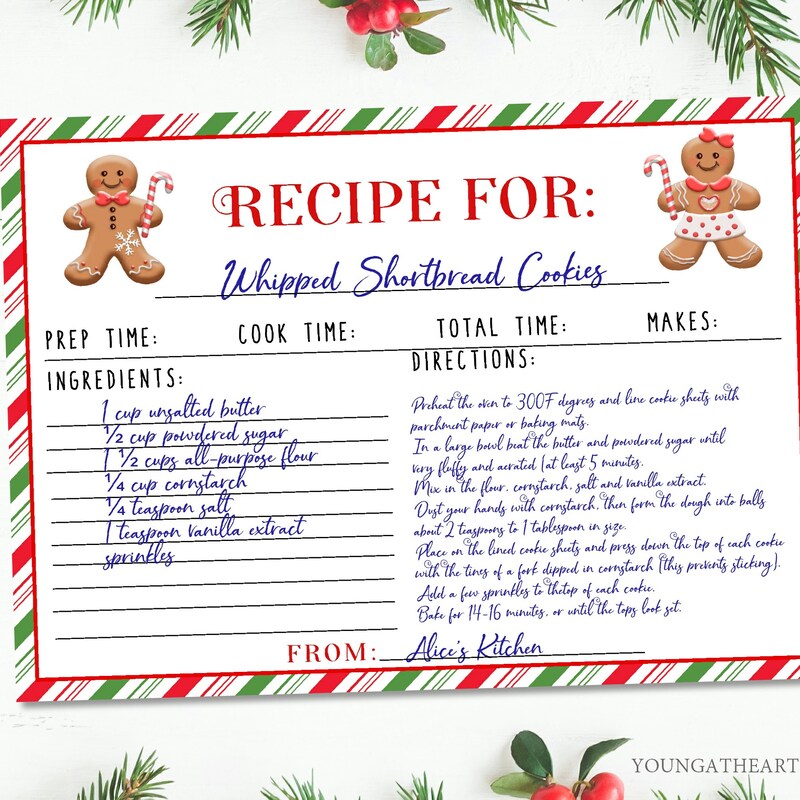 RECIPE FOR:
Whipped Shortbread Cookies
PREP TIME: COOK TIME: TOTAL TIME: MAKES:
INGREDIENTS:
1 cup unsalted butter
½ cup powdered sugar
1 ½ cups all-purpose flour
¼ cup cornstarch
¼ teaspoon salt
1 teaspoon vanilla extract
sprinkles
DIRECTIONS:
Preheat the oven to 300F degrees and line cookie sheets with
parchment paper or baking mats.
In a large bowl beat the butter and powdered sugar until
very fluffy and aerated (at least 5 minutes.
Mix in the flour, cornstarch, salt and vanilla extract.
Dust your hands with cornstarch, then form the dough into balls
about 2 teaspoons to 1 tablespoon in size.
Place on the lined cookie sheets and press down the top of each cookie
with the tines of a fork dipped in cornstarch (this prevents sticking).
Add a few sprinkles to thetop of each cookie.
Bake for 14-16 minutes, or until the tops look set.
FROM: Alice's Kitchen
YOUNGATHEART